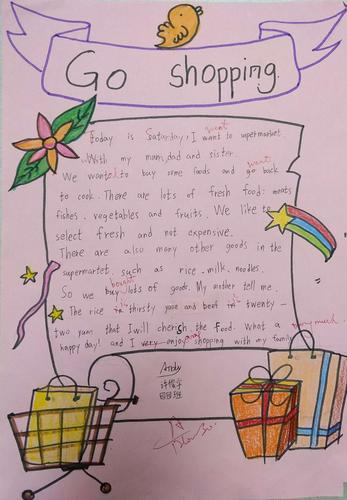 Go shopping.
Today is Saturday, I want to supermarket
went
With my mum, dad and sister.
We wanted to buy some foods and go back
went
to cook. There are lots of fresh food: meats
fishes, vegetables and fruits. We like to
select fresh and not expensive.
There are also many other goods in the
supermartet. such as rice. milk. noodles.
bought
So we buy lots of goods. My mother tell me.
The rice is thirsty and beef is twenty-
two yuan that I will cherish the food. What a
very much.
happy day! and I very enjoy shopping with my family
Andy